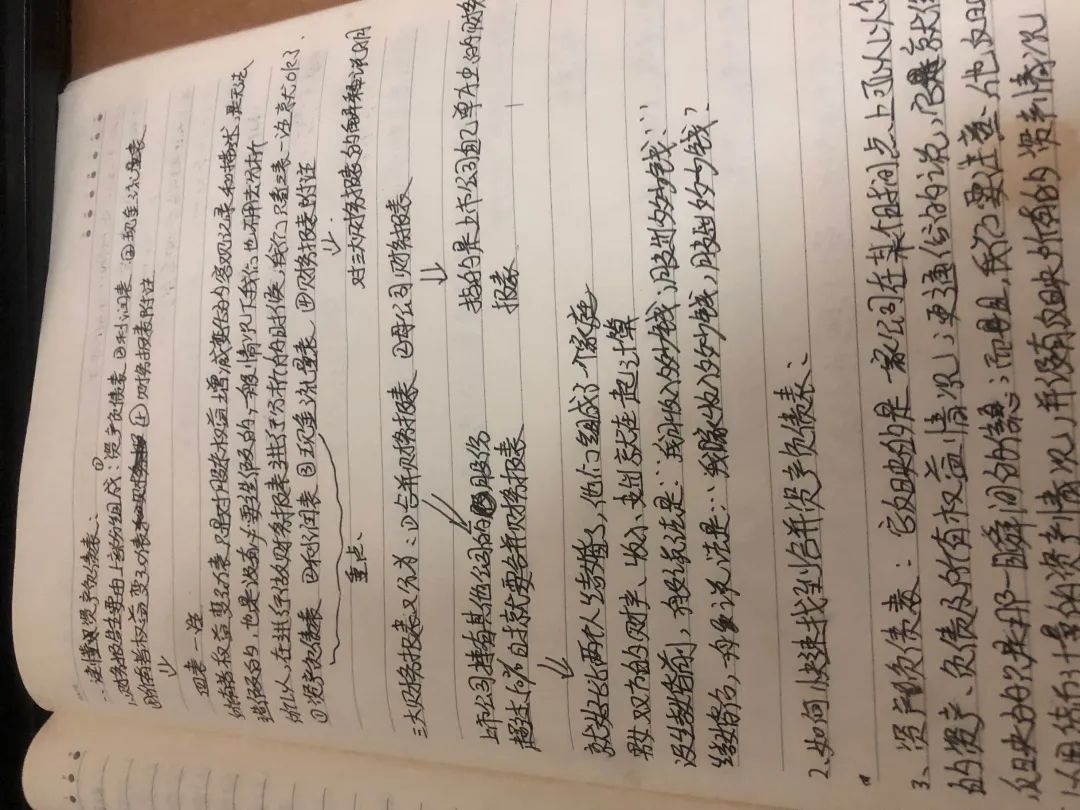 一、读懂资产负债表、
1.财务报告主要由上部份组成：①资产负债表 ②利润表 ③现金流量表
④所有者权益变动表 ⑤财务报表附注
四表一注
所有者权益变动表只是对股东权益增减变化的客观记录和描述，是无法
造假的，也是没有必要造假的，一般情况下我们也不用去分析
所以，在进行财务报表进行分析的时候，我们只看三表一注就OK了、
①资产负债表 ②利润表 ③现金流量表 ④财务报表附注
重点、
对三大财务报表的解释说明
三大财务报表又分为：①合并财务报表 ②母公司财务报表
上市公司持有其他公司的股份
超过50%时就要合并财务报表
指的是上市公司自己单独的财务
报表
就好比两个人结婚了，他们组成了个家庭
那么双方的财产、收入、支出就在一起计算
没结婚前，一般说法是：“我收入多少钱，我支出多少钱”
结婚后，一般说法是：“我家收入多少钱，我家支出多少钱？
2、如何快速找到合并资产负债表、
3、资产负债表：它反映的是一家公司在某个时间点上
的资产、负债及所有权益情况；更通俗的说，它是
反映的只是那一瞬间的信息；而且，我们要注意，他反映
以用货币计量的资产情况，并没有反映所有的资产情况